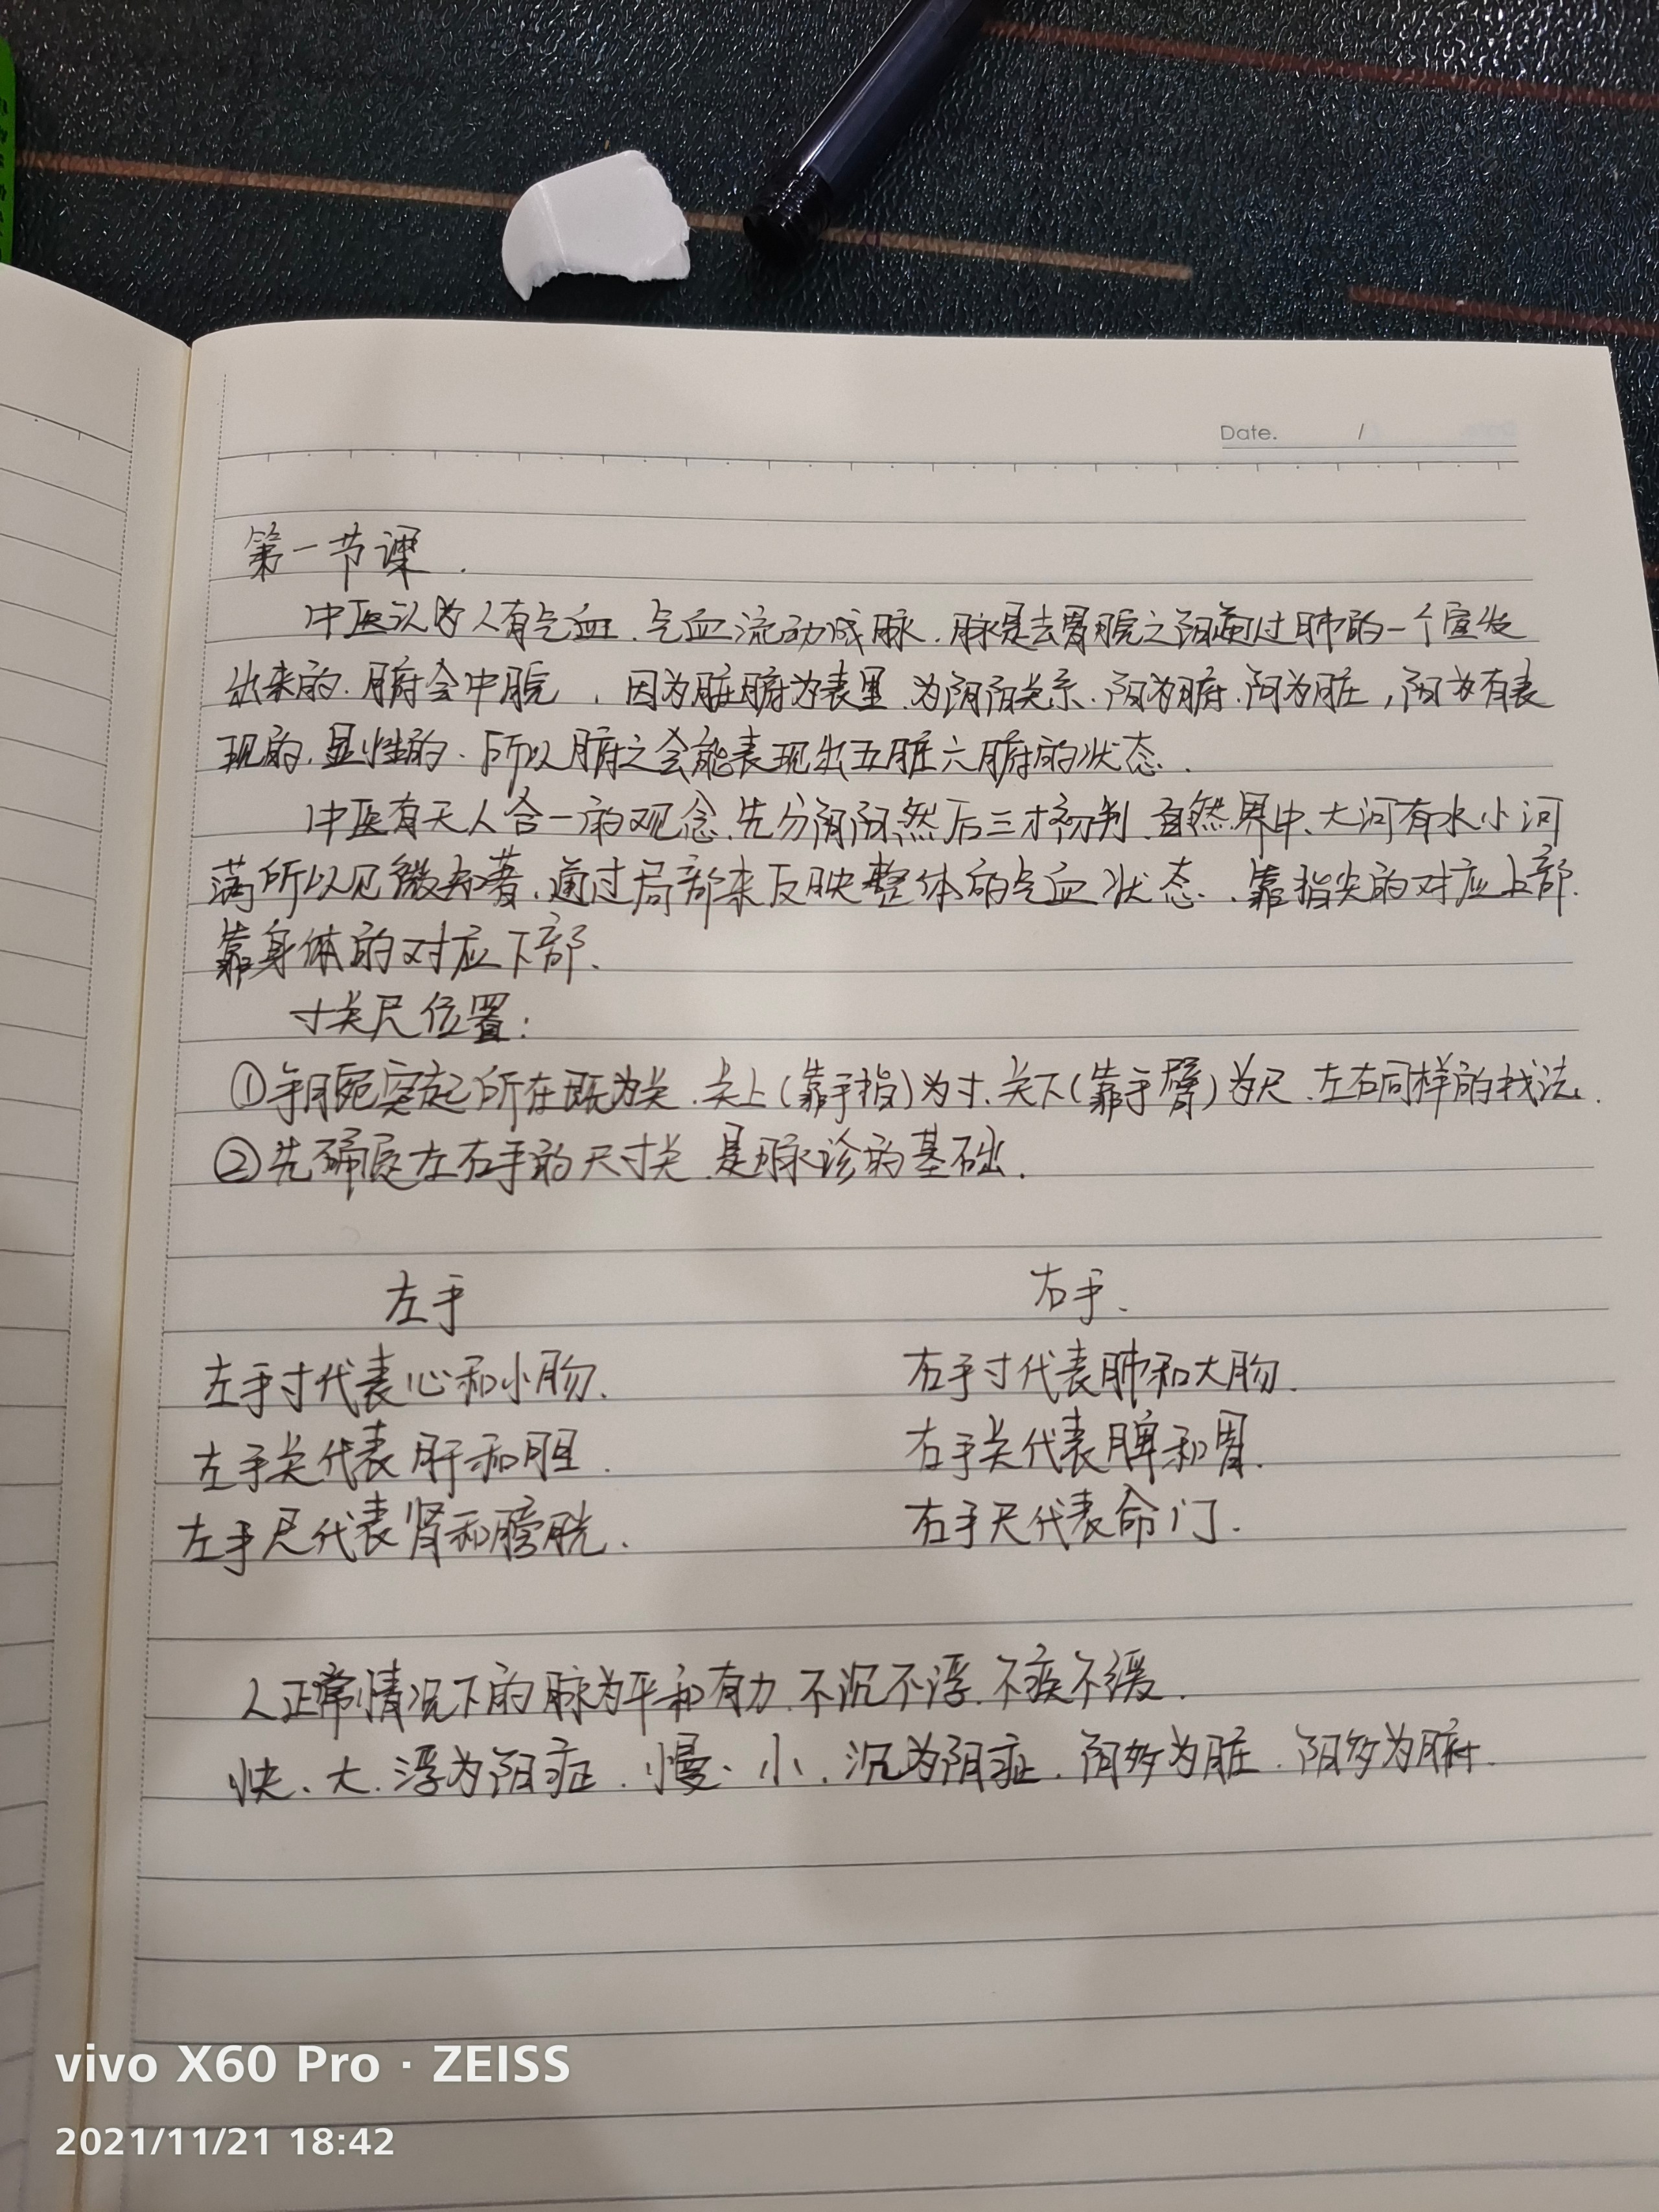 Date. /
第一节课.
中医认为人有气血.气血流动成脉.脉是去胃脘之阳通过肺的一个宣发
出来的.腑会中脘,因为脏腑为表里.为阴阳关系.阳为腑.阴为脏,阳为有表
现的.显性的.所以腑之会能表现出五脏六腑的状态.
中医有天人合一的观念.先分阴阳然后三才初判.自然界中、大河有水小河
满所以见微知著.通过局部来反映整体的气血状态.靠指尖的对应上部.
靠身体的对应下部.
寸关尺位置:
①手腕突起所在既为关.关上(靠手指)为寸、关下(靠手臂)为尺.左右同样的找法.
②先确定左右手的尺寸关.是脉诊的基础.
左手 右手.
左手寸代表心和小肠. 右手寸代表肺和大肠.
左手关代表肝和胆. 右手关代表脾和胃.
左手尺代表肾和膀胱. 右手尺代表命门.
人正常情况下的脉为平和有力.不沉不浮.不疾不缓.
快、大.浮为阳症.慢、小.沉为阴症.阴多为脏.阳多为腑.
vivo X60 Pro · ZEISS
2021/11/21 18:42